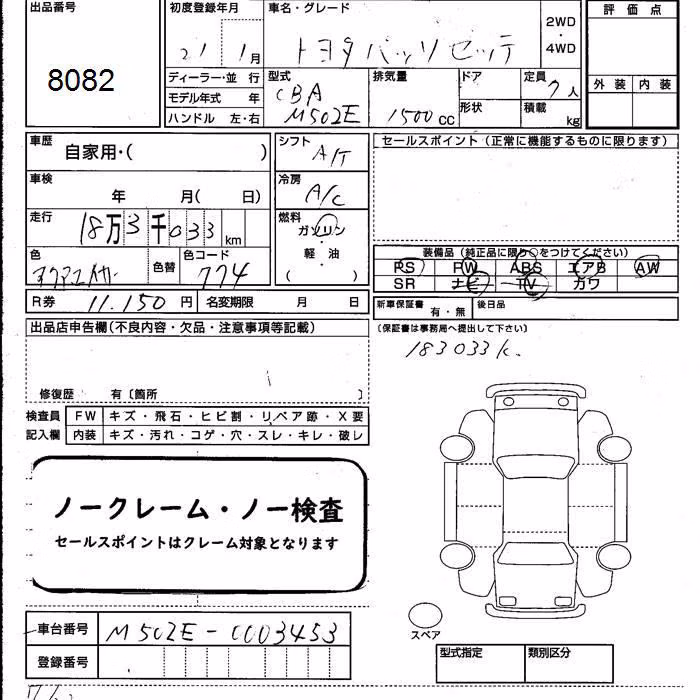 出品番号
8082
初度登録年月
21 1月
車名・グレード
トヨタ パッソセッテ
2WD
・
4WD
評価点
外装 内装
ディーラー・並 行
モデル年式 年
ハンドル 左・右
型式
CBA
M502E
排気量
1500cc
ドア
形状
定員
7人
積載
kg
車歴
自家用・( )
車検
年 月( 日)
走行
18万3千033km
色
色替
色コード
774
R券 11.150円 名変期限 月 日
シフト
A/T
冷房
A/C
燃料
ガソリン
・
軽油
( )
セールスポイント(正常に機能するものに限ります)
装備品(純正品に限り○をつけてください)
PS PW ABS エアB AW
SR ナビ TV ガワ
新車保証書 有・無 後日品
(保証書は事務局へ提出して下さい)
183033k.
出品店申告欄(不良内容・欠品・注意事項等記載)
修復歴 有〔箇所 〕
検査員 FW キズ・飛石・ヒビ割・リペア跡・X要
記入欄 内装 キズ・汚れ・コゲ・穴・スレ・キレ・破レ
ノークレーム・ノー検査
セールスポイントはクレーム対象となります
車台番号 M502E-0003453
登録番号
スペア
型式指定 類別区分